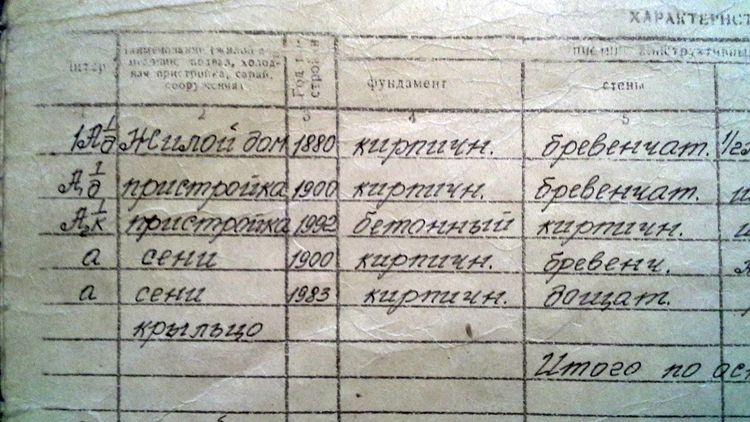 ХАРАКТЕРИСТ
литер
наименование (жилого
подвал, холод-
ная пристройка, сарай,
сооружения)
Год
фундамент
стены
1 2 3 4 5
Жилой дом 1880 кирпичн. бревенчат.
пристройка 1900 кирпичн. бревенчат.
пристройка 1992 бетонный кирпичн.
а сени 1900 кирпичн. бревенч.
а сени 1983 кирпичн. дощат.
крыльцо
Итого по